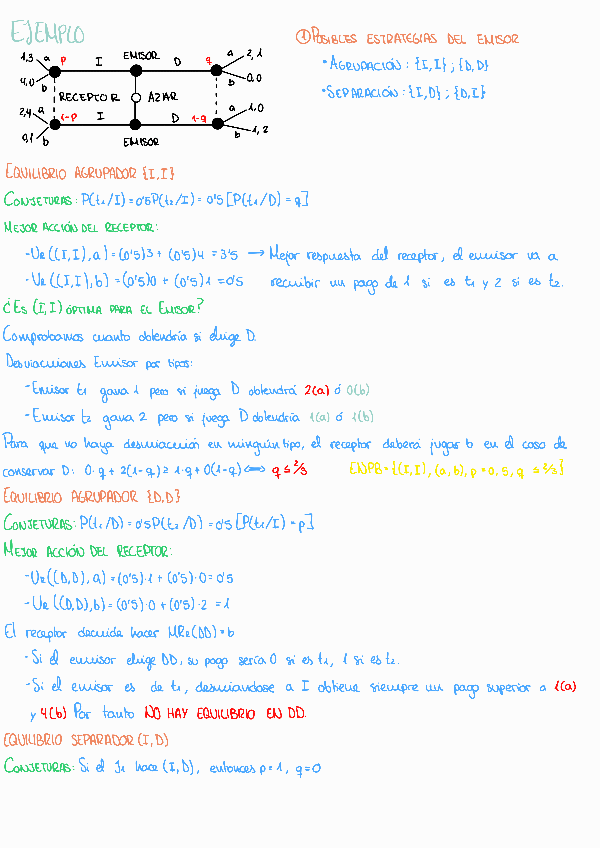 EJEMPLO
① POSIBLES ESTRATEGIAS DEL EMISOR
· AGRUPACIÓN: {I,I} ; {D,D}
· SEPARACIÓN: {I,D} ; {D,I}
1,3 a p I EMISOR D q a 2,1
4,0 b b 0,0
RECEPTOR AZAR
2,4 a 1-p I D 1-q a 1,0
0,1 b EMISOR b 1,2
EQUILIBRIO AGRUPADOR {I,I}
CONJETURAS: P(t₁/I)=0'5 P(t₂/I)=0'5 [P(t₁/D)=q]
MEJOR ACCIÓN DEL RECEPTOR:
- UR((I,I),a)=(0'5)3+(0'5)4=3'5 → Mejor respuesta del receptor, el emisor va a
- UR((I,I),b)=(0'5)0+(0'5)1=0'5 recibir un pago de 1 si es t₁ y 2 si es t₂.
¿ES (I,I) ÓPTIMA PARA EL EMISOR?
Comprobamos cuanto obtendría si elige D.
Desviaciones Emisor por tipos:
- Emisor t₁ gana 1 pero si juega D obtendrá 2(a) ó 0(b)
- Emisor t₂ gana 2 pero si juega D obtendría 1(a) ó 1(b)
Para que no haya desviación en ningún tipo, el receptor deberá jugar b en el caso de
conservar D: 0·q+2(1-q)≥1·q+0(1-q) ⟺ q≤2/3 ENPB={(I,I),(a,b),p=0,5,q≤2/3}
EQUILIBRIO AGRUPADOR {D,D}
CONJETURAS: P(t₁/D)=0'5 P(t₂/D)=0'5 [P(t₁/I)=p]
MEJOR ACCIÓN DEL RECEPTOR:
- UR((D,D),a)=(0'5)·1+(0'5)·0=0'5
- UR((D,D),b)=(0'5)·0+(0'5)·2=1
El receptor decide hacer MR₂(DD)=b
- Si el emisor elige DD, su pago sería 0 si es t₁, 1 si es t₂.
- Si el emisor es de t₁, desviandose a I obtiene siempre un pago superior a 1(a)
y 4(b) Por tanto NO HAY EQUILIBRIO EN DD.
EQUILIBRIO SEPARADOR (I,D)
CONJETURAS: Si el J₁ hace (I,D), entonces p=1, q=0